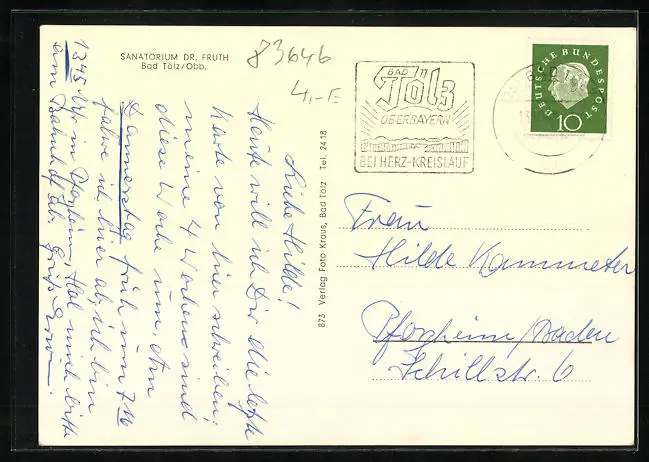 SANATORIUM DR. FRUTH
Bad Tölz/Obb.
83646
4,-E
BAD
Tölz
OBERBAYERN
BEI HERZ-KREISLAUF
DEUTSCHE BUNDESPOST
10
Liebe Hilde!
Heute will ich Dir die letzte
Karte von hier schreiben,
meine 4 Wochen sind
diese Woche um. Am
Donnerstag früh um 7
fahre ich hier ab, ich bin
1345 Uhr in Pforzheim, Hol mich bitte
am Bahnhof ab. Gruß Erwin.
873 Verlag Foto Kraus, Bad Tölz Tel. 2418
Frau
Hilde Kammeter
Pforzheim/Baden
Schillstr. 6